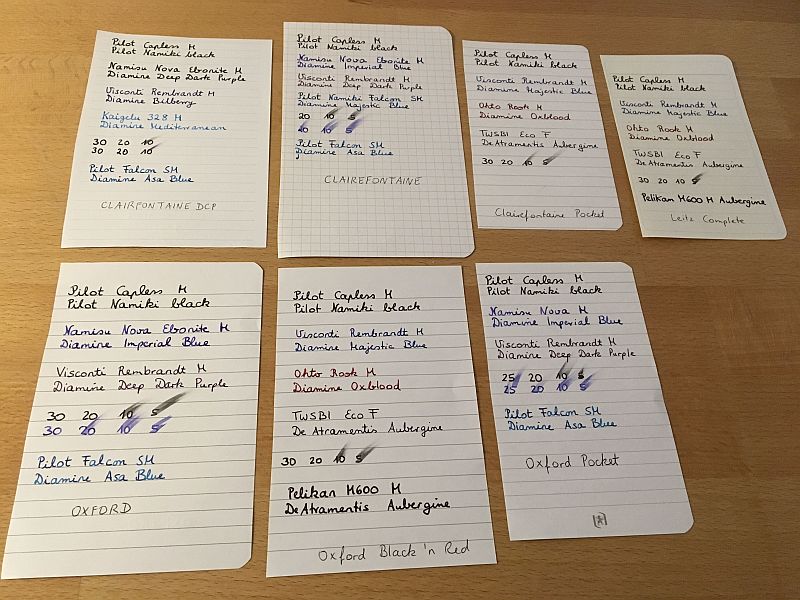 Pilot Capless M
Pilot Namiki black
Namisu Nova Ebonite M
Diamine Deep Dark Purple
Visconti Rembrandt M
Diamine Bilberry
Kaigelu 328 M
Diamine Mediterranean
30 20 10
30 20 10
Pilot Falcon SM
Diamine Asa Blue
CLAIRFONTAINE DCP
Pilot Capless M
Pilot Namiki black
Namisu Nova Ebonite M
Diamine Imperial Blue
Visconti Rembrandt M
Diamine Deep Dark Purple
Pilot Namiki Falcon SM
Diamine Majestic Blue
20 10 5
10 10 5
Pilot Falcon SM
Diamine Asa Blue
CLAIREFONTAINE
Pilot Capless M
Pilot Namiki black
Visconti Rembrandt M
Diamine Majestic Blue
Ohto Rook M
Diamine Oxblood
TWSBI Eco F
De Atramentis Aubergine
30 20 10 5
Clairefontaine Pocket
Pilot Capless M
Pilot Namiki black
Visconti Rembrandt M
Diamine Majestic Blue
Ohto Rook M
Diamine Oxblood
TWSBI Eco F
De Atramentis Aubergine
30 20 10 5
Pelikan M600 M Aubergine
Leitz Complete
Pilot Capless M
Pilot Namiki black
Namisu Nova Ebonite M
Diamine Imperial Blue
Visconti Rembrandt M
Diamine Deep Dark Purple
30 20 10 5
30 20 10 5
Pilot Falcon SM
Diamine Asa Blue
OXFORD
Pilot Capless M
Pilot Namiki black
Visconti Rembrandt M
Diamine Majestic Blue
Ohto Rook M
Diamine Oxblood
TWSBI Eco F
De Atramentis Aubergine
30 20 10 5
Pelikan M600 M
De Atramentis Aubergine
Oxford Black 'n Red
Pilot Capless M
Pilot Namiki black
Namisu Nova M
Diamine Imperial Blue
Visconti Rembrandt M
Diamine Deep Dark Purple
25 20 10 5
25 20 10 5
Pilot Falcon SM
Diamine Asa Blue
Oxford Pocket